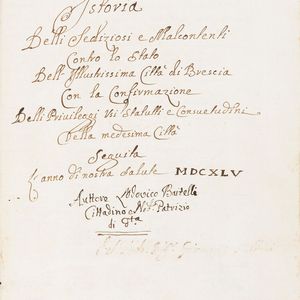 Istoria
Delli Sediziosi e Malcontenti
Contro lo Stato
Dell' Illustrissima Città di Brescia
Con la Confirmazione
Delli Privileggi Usi Statutti e Consuetudini
della medesima Città
Seguita
L'anno di nostra salute MDCXLV
Auttore Lodovico Butelli
Cittadino e Nob. Patrizio
di